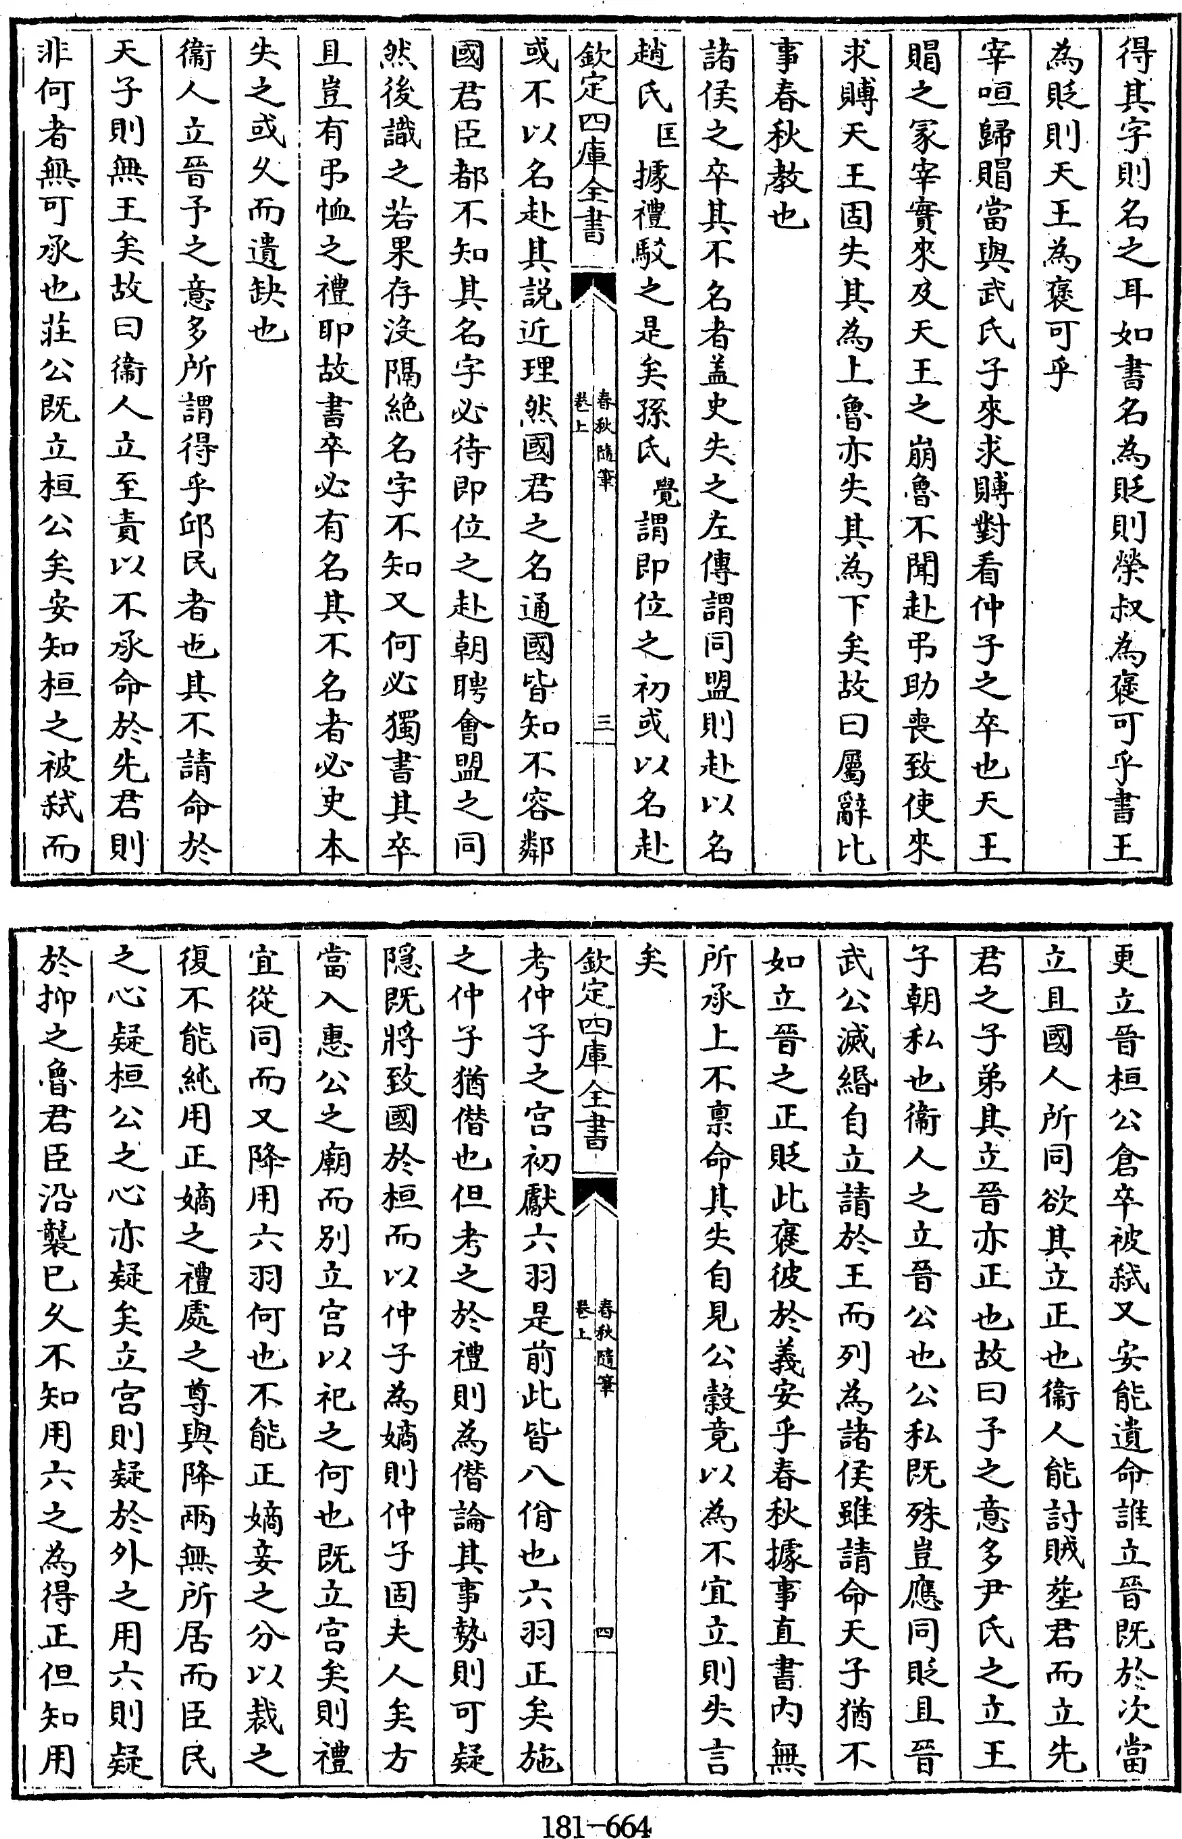 得其字則名之耳如書名為貶則榮叔為褒可乎書王
為貶則天王為褒可乎
宰咺歸賵當與武氏子來求賻對看仲子之卒也天王
賵之冢宰實來及天王之崩魯不聞赴弔助喪致使來
求賻天王固失其為上魯亦失其為下矣故曰屬辭比
事春秋教也
諸侯之卒其不名者蓋史失之左傳謂同盟則赴以名
趙氏匡據禮駁之是矣孫氏覺謂即位之初或以名赴
欽定四庫全書
春秋隨筆
卷上
三
或不以名赴其説近理然國君之名通國皆知不容鄰
國君臣都不知其名字必待即位之赴朝聘會盟之同
然後識之若果存沒隔絶名字不知又何必獨書其卒
且豈有弔恤之禮耶故書卒必有名其不名者必史本
失之或乆而遺缺也
衞人立晉予之意多所謂得乎邱民者也其不請命於
天子則無王矣故曰衞人立至責以不承命於先君則
非何者無可承也莊公既立桓公矣安知桓之被弑而
更立晉桓公倉卒被弑又安能遺命誰立晉既於次當
立且國人所同欲其立正也衞人能討賊塟君而立先
君之子弟其立晉亦正也故曰予之意多尹氏之立王
子朝私也衞人之立晉公也公私既殊豈應同貶且晉
武公滅緡自立請於王而列為諸侯雖請命天子猶不
如立晉之正貶此褒彼於義安乎春秋據事直書内無
所承上不禀命其失自見公穀竟以為不宜立則失言
矣
欽定四庫全書
春秋隨筆
卷上
四
考仲子之宫初獻六羽是前此皆八佾也六羽正矣施
之仲子猶僭也但考之於禮則為僭論其事勢則可疑
隱既將致國於桓而以仲子為嫡則仲子固夫人矣方
當入惠公之廟而别立宫以祀之何也既立宫矣則禮
宜從同而又降用六羽何也不能正嫡妾之分以裁之
復不能純用正嫡之禮處之尊與降兩無所居而臣民
之心疑桓公之心亦疑矣立宫則疑於外之用六則疑
於抑之魯君臣沿襲已乆不知用六之為得正但知用
181-664